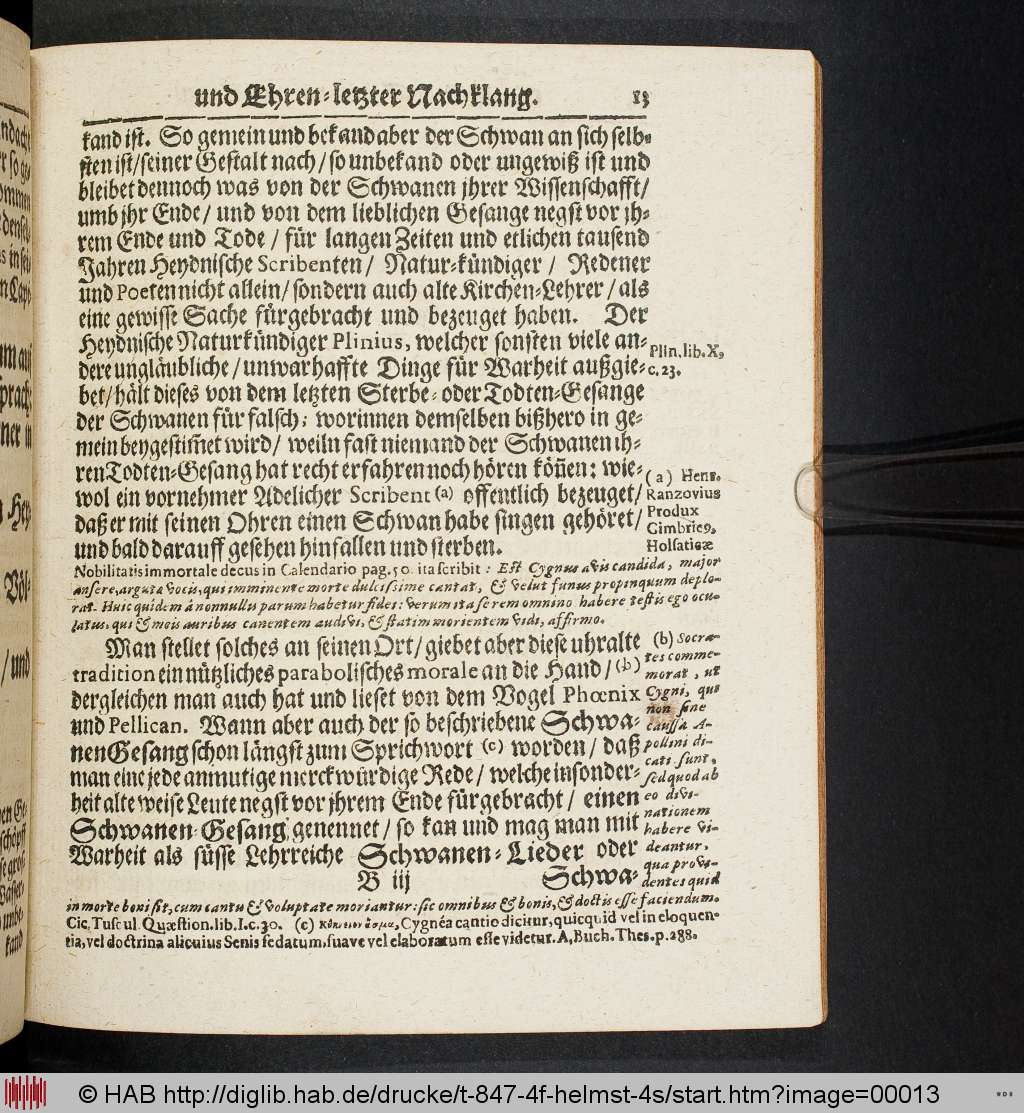 und Ehren-letzter Nachklang. 13
kand ist. So gemein und bekand aber der Schwan an sich selb-
sten ist/seiner Gestalt nach/so unbekand oder ungewiß ist und
bleibet dennoch was von der Schwanen jhrer Wissenschafft/
umb jhr Ende/ und von dem lieblichen Gesange negst vor jh-
rem Ende und Tode/ für langen Zeiten und etlichen tausend
Jahren Heydnische Scribenten/ Natur-kündiger/ Redener
und Poeten nicht allein/ sondern auch alte Kirchen-Lehrer/als
eine gewisse Sache fürgebracht und bezeuget haben. Der
Heydnische Naturkündiger Plinius, welcher sonsten viele an-
dere ungläubliche/unwarhaffte Dinge für Warheit außgie-
bet/hält dieses von dem letzten Sterbe- oder Todten-Gesange
der Schwanen für falsch; worinnen demselben bißhero in ge-
mein beygestim̃et wird/ weiln fast niemand der Schwanen ih-
ren Todten-Gesang hat recht erfahren noch hören kön̄en: wie-
wol ein vornehmer Adelicher Scribent (a) offentlich bezeuget/
daß er mit seinen Ohren einen Schwan habe singen gehöret/
und bald darauff gesehen hinfallen und sterben.
Plin. lib. X,
c. 23.
(a) Henr.
Ranzovius
Produx
Cimbricꝰ,
Holsaticæ
Nobilitatis immortale decus in Calendario pag. 50. ita scribit: Est Cygnus avis candida, major
ansere, arguta vocis, qui imminente morte dulcissime cantat, & velut funus propinquum deplo-
rat. Huic quidem à nonnullis parum habetur fidei: verum ita se rem omnino habere testis ego ocu-
latus, qui & meis auribus canentem audivi, & statim morientem vidi, affirmo.
Man stellet solches an seinen Ort/giebet aber diese uhralte
tradition ein nützliches parabolisches morale an die Hand/ (b)
dergleichen man auch hat und lieset von dem Vogel Phœnix
und Pellican. Wann aber auch der so beschriebene Schwa-
nen Gesang schon längst zum Sprichwort (c) worden/ daß
man eine jede anmutige merckwürdige Rede/ welche insonder-
heit alte weise Leute negst vor jhrem Ende fürgebracht/ einen
Schwanen-Gesang genennet/ so kan und mag man mit
Warheit als süsse Lehrreiche Schwanen-Lieder oder
B iij Schwa-
(b) Socra-
tes comme-
morat, ut
Cygni, qui
non sine
caussa A-
pollini di-
cati sunt,
sed quod ab
eo divi-
nationem
habere vi-
deantur,
qua provi-
dentes quid
in morte boni sit, cum cantu & voluptate moriantur: sic omnibus & bonis, & doctis esse faciendum.
Cic. Tuscul. Quæstion. lib. I. c. 30. (c) Cygnéa cantio dicitur, quicquid vel in eloquen-
tia, vel doctrina alicuius Senis sedatum, suave vel elaboratum esse videtur. A. Buch. Thes. p. 288.
© HAB http://diglib.hab.de/drucke/t-847-4f-helmst-4s/start.htm?image=00013